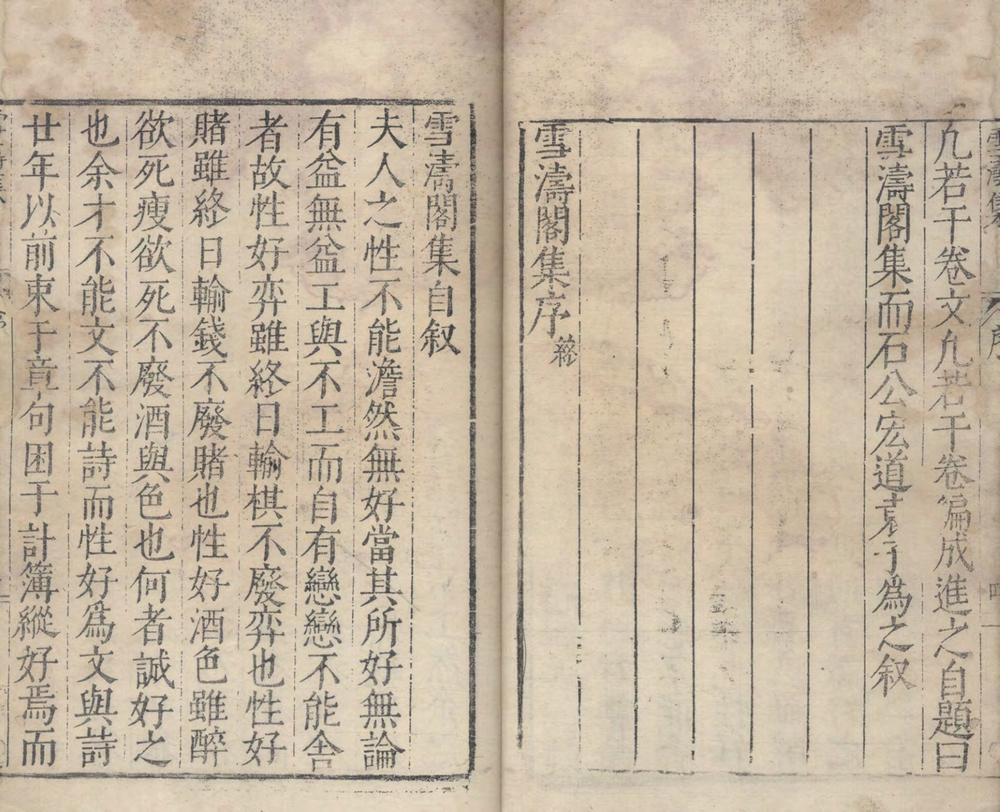 凢若干卷文凢若干卷編成進之自題曰
雪濤閣集而石公宏道袁子為之叙
雪濤閣集序終
雪濤閣集自叙
夫人之性不能澹然無好當其所好無論
有益無益工與不工而自有戀戀不能舍
者故性好弈雖終日輸棋不廢弈也性好
賭雖終日輸錢不廢賭也性好酒色雖醉
欲死瘦欲死不廢酒與色也何者誠好之
也余才不能文不能詩而性好為文與詩
廿年以前束于章句困于計簿縱好焉而